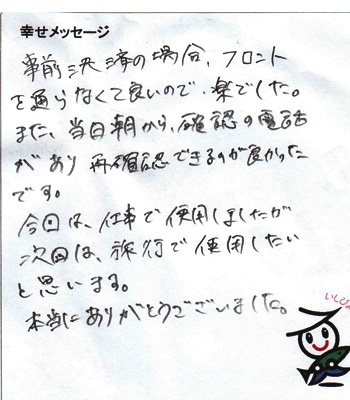 幸せメッセージ
事前決済の場合、フロント
を通らなくて良いので、楽でした。
また、当日朝から、確認の電話
があり再確認できるのが良かった
です。
今回は、仕事で使用しましたが
次回は、旅行で使用したい
と思います。
本当にありがとうございました。